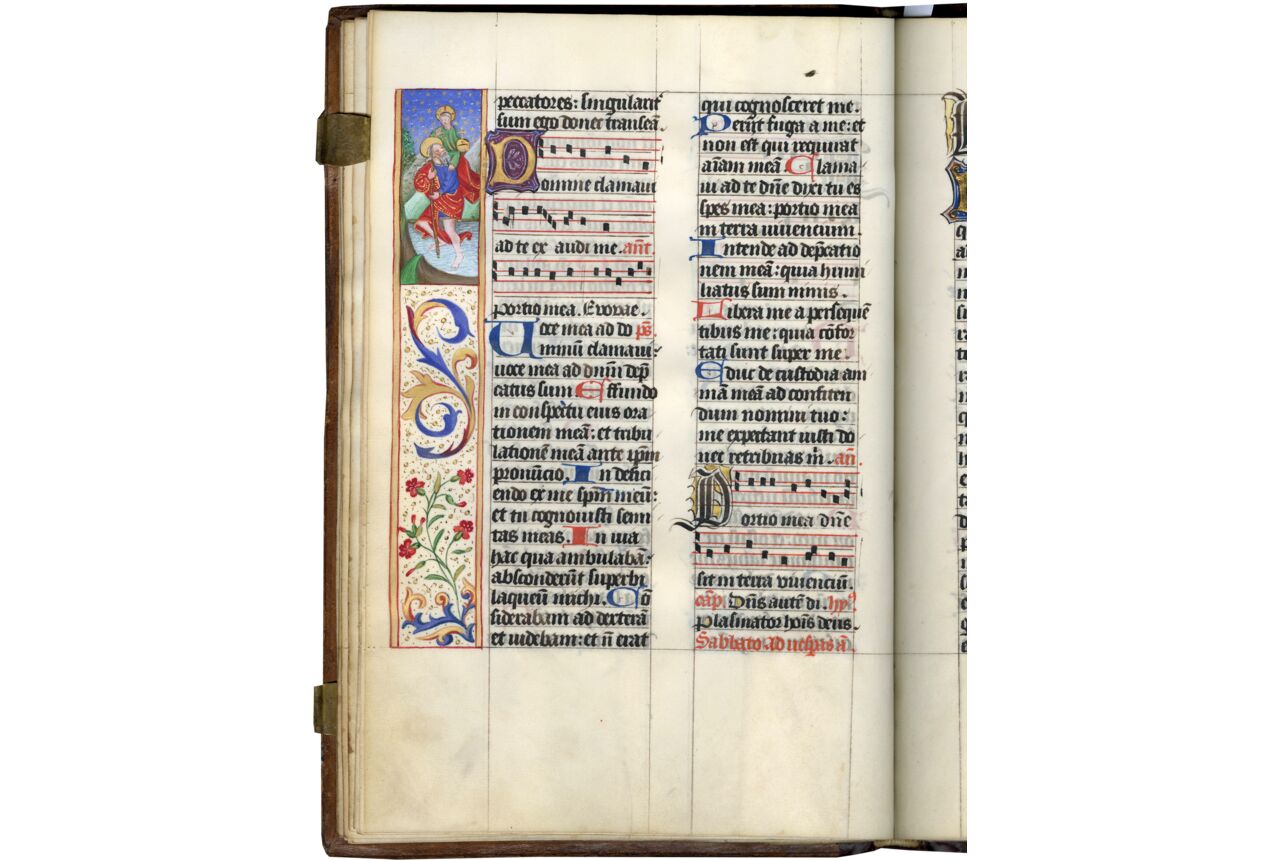 peccatores: singularit᷑
sum ego donec transeā.
Domine clamaui
ad te ex audi me. ant̄
portio mea. Evovae.
Uoce mea ad do p̄s.
minū clamaui:
uoce mea ad dnīm dep̄
catus sum Effundo
in conspectu eius ora
tionem meā: et tribu
lationē meā ante ip̄m
pronūcio. In defici
endo ex me sp̄m meū:
et tu cognouisti semi
tas meas. In uia
hac qua ambulabā:
absconderūt superbi
laqueū michi. Cō
siderabam ad dexterā
et uidebam: et n̄ erat
qui cognosceret me.
Periit fuga a me: et
non est qui requirat
aīam meā Clama
ui ad te dn̄e dixi tu es
spes mea: portio mea
in terra uiuencium.
Intende ad dep̄catio
nem meā: quia humi
liatus sum nimis.
Libera me a persequē
tibus me: quia cōfor
tati sunt super me.
Educ de custodia ani
mā meā ad confiten
dum nomini tuo:
me expectant iusti do
nec retribuas m̄. an̄.
Portio mea dn̄e
sit in terra viuenciū.
cap̄ Dn̄s autē di. hy᷑
Plasmator hoīs deus.
Sabbato ad uesp̄as ā